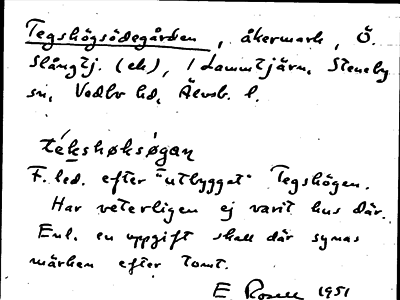 Tegshögsödegården, åkermark, Ö.
Slångtj. (ek), i Lammtjärn, Steneby
sn, Vedbo hd, Älvsb. l.
tékshøksøgan
F. led. efter "utbygget" Tegshögen.
Har veterligen ej varit hus där.
Enl. en uppgift skall där synas
märken efter tomt.
E Rosell 1951